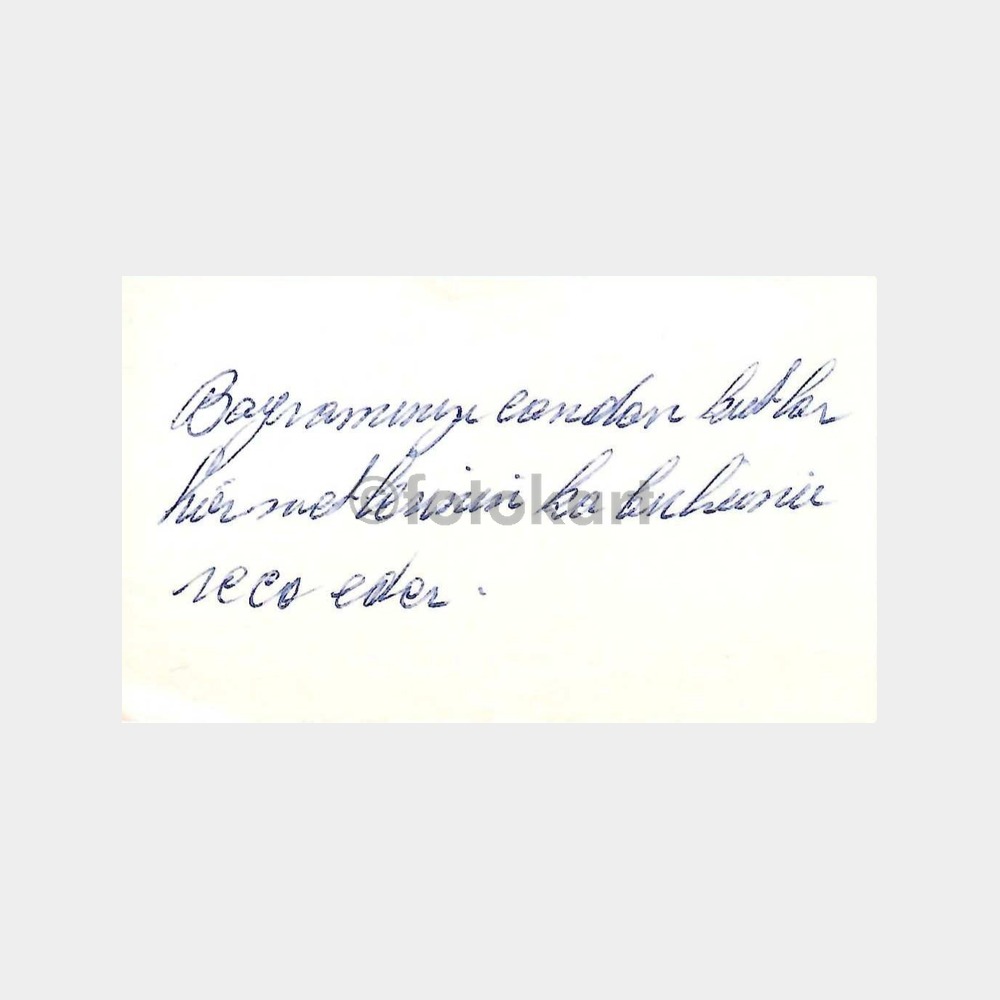 Bayramınızı candan kutlar
hürmetlerimin kabulünü
reca eder.
©fotokart